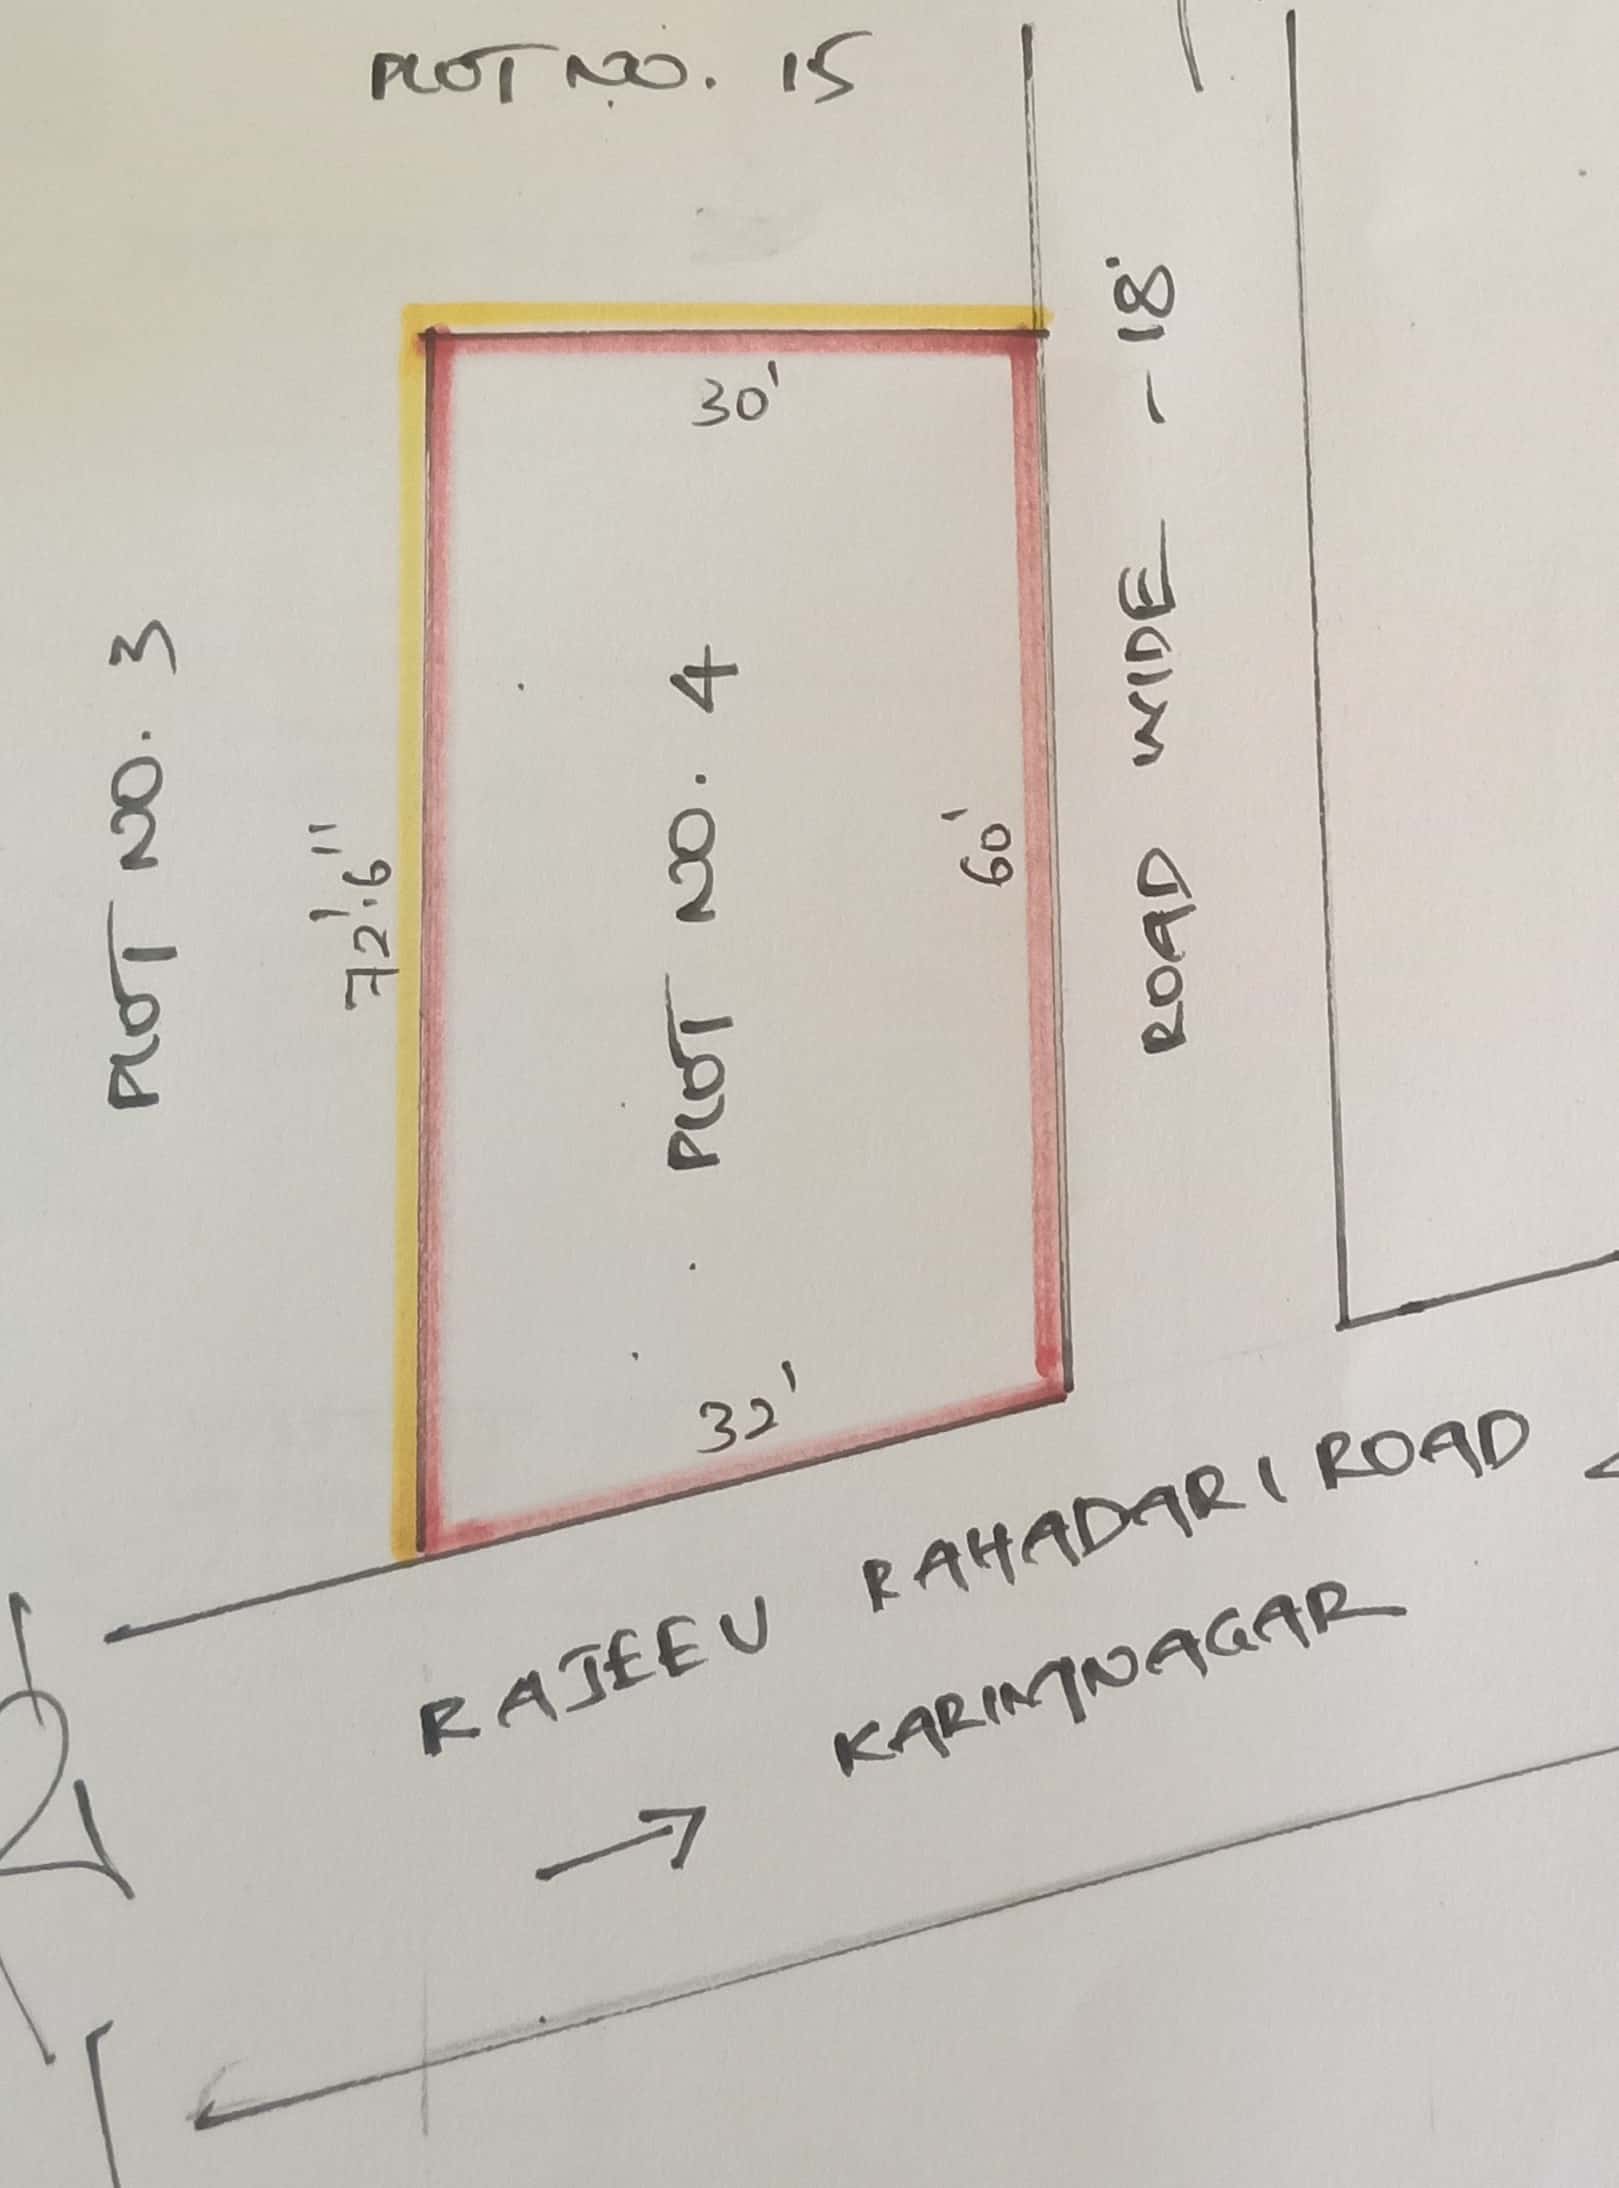 PLOT NO. 15
30'
PLOT NO. 3
72'.6"
PLOT NO. 4
60'
ROAD WIDE - 18'
32'
RAJEEV RAHADARI ROAD
→ KARIMNAGAR